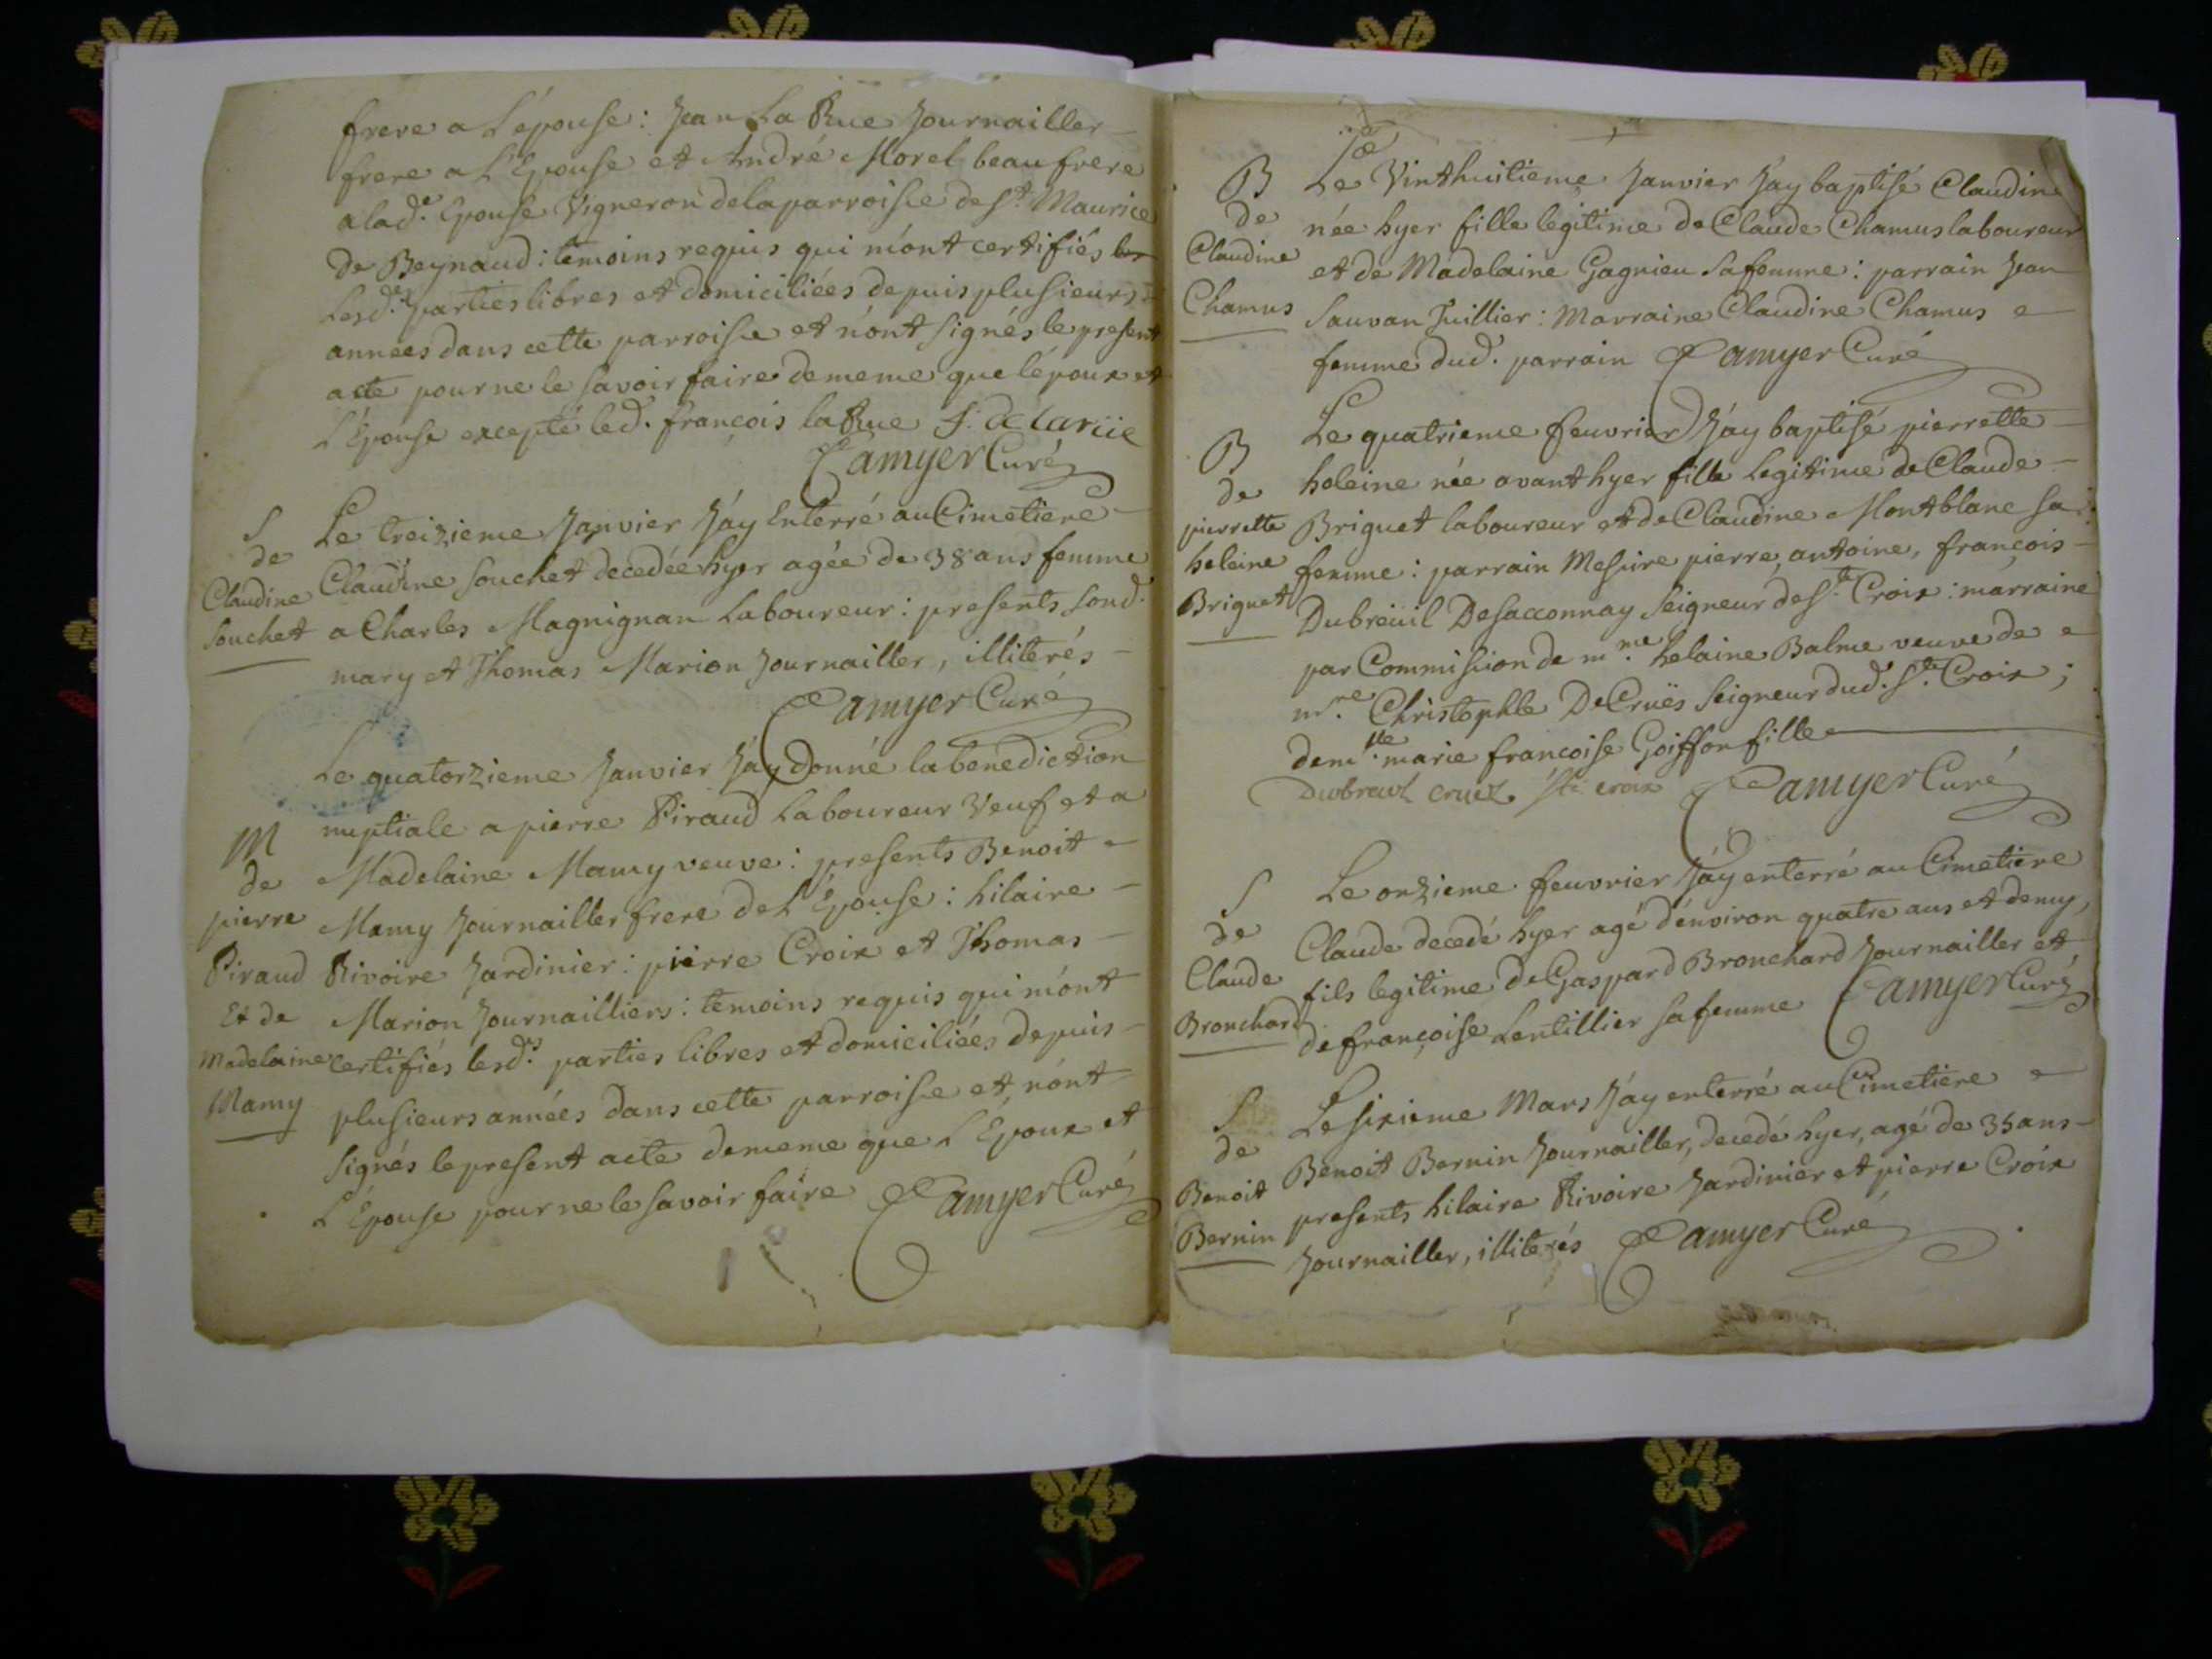 frere a L'épouse : Jean La Rue Journailler
frere a L'Epouse et André Morel beaufrere
a lad.e Epouse Vigneron de la parroisse de St. Maurice
de Beynaud : temoins requis qui m'ont certifiés
Lesd.es parties libres et domiciliées depuis plusieurs
années dans cette parroisse et n'ont signés le present
acte pour ne le savoir faire de meme que l'époux et
L'Epouse excepté led. françois la Rue f. De larüe
Camyer Curé
S
de
Claudine
Souchet
Le treizieme Janvier J'ay Enterré au Cimetiere
Claudine Souchet decedée hyer agée de 38 ans femme
a Charles Magnignan Laboureur : presents sond.
mary et Thomas Marion Journailler, illiterés
Camyer Curé
M
de
pierre
Piraud
Et de
Madelaine
Mamy
Le quatorzieme Janvier J'ay donné la benediction
nuptiale a pierre Piraud Laboureur Veuf et a
Madelaine Mamy veuve : presents Benoit
Mamy Journailler frere de L'Epouse : hilaire
Rivoire Jardinier : pierre Croix et Thomas
Marion Journailliers : temoins requis qui m'ont
certifiés lesd.es parties libres et domiciliées depuis
plusieurs années dans cette parroisse et n'ont
signés le present acte de meme que L'Epoux et
L'Epouse pour ne le savoir faire Camyer Curé
B
de
Claudine
Chamus
Le Vinthuitieme Janvier J'ay baptisé Claudine
née hyer fille legitime de Claude Chamus laboureur
et de Madelaine Gagnieu sa femme : parrain Jean
Sauvan Tuillier : Marraine Claudine Chamus
femme dud. parrain Camyer Curé
B
de
pierrette
heleine
Briguet
Le quatrieme feuvrier J'ay baptisé pierrette
heleine née avant hyer fille Legitime de Claude
Briguet laboureur et de Claudine Montblanc sa
femme : parrain Messire pierre, antoine, françois
Dubreüil Desacconnay seigneur de Ste. Croix : marraine
par Commission de m.me helaine Balme veuve de
m.re Christophle De Cruës seigneur dud. Ste. Croix ;
dem.lle marie francoise Goiffon fille
Dubreüil cruez. Ste croix Camyer Curé
S
de
Claude
Bronchard
Le onzieme feuvrier J'ay enterré au Cimetiere
Claude decedé hyer agé d'environ quatre ans et demy,
fils legitime de Gaspard Bronchard Journailler et
de françoise Lentillier sa femme Camyer Curé
S
de
Benoit
Bernin
Le sixieme Mars J'ay enterré au Cimetiere
Benoit Bernin Journailler, decedé hyer, agé de 35 ans
presents hilaire Rivoire Jardinier et pierre Croix
Journailler, illiterés Camyer Curé